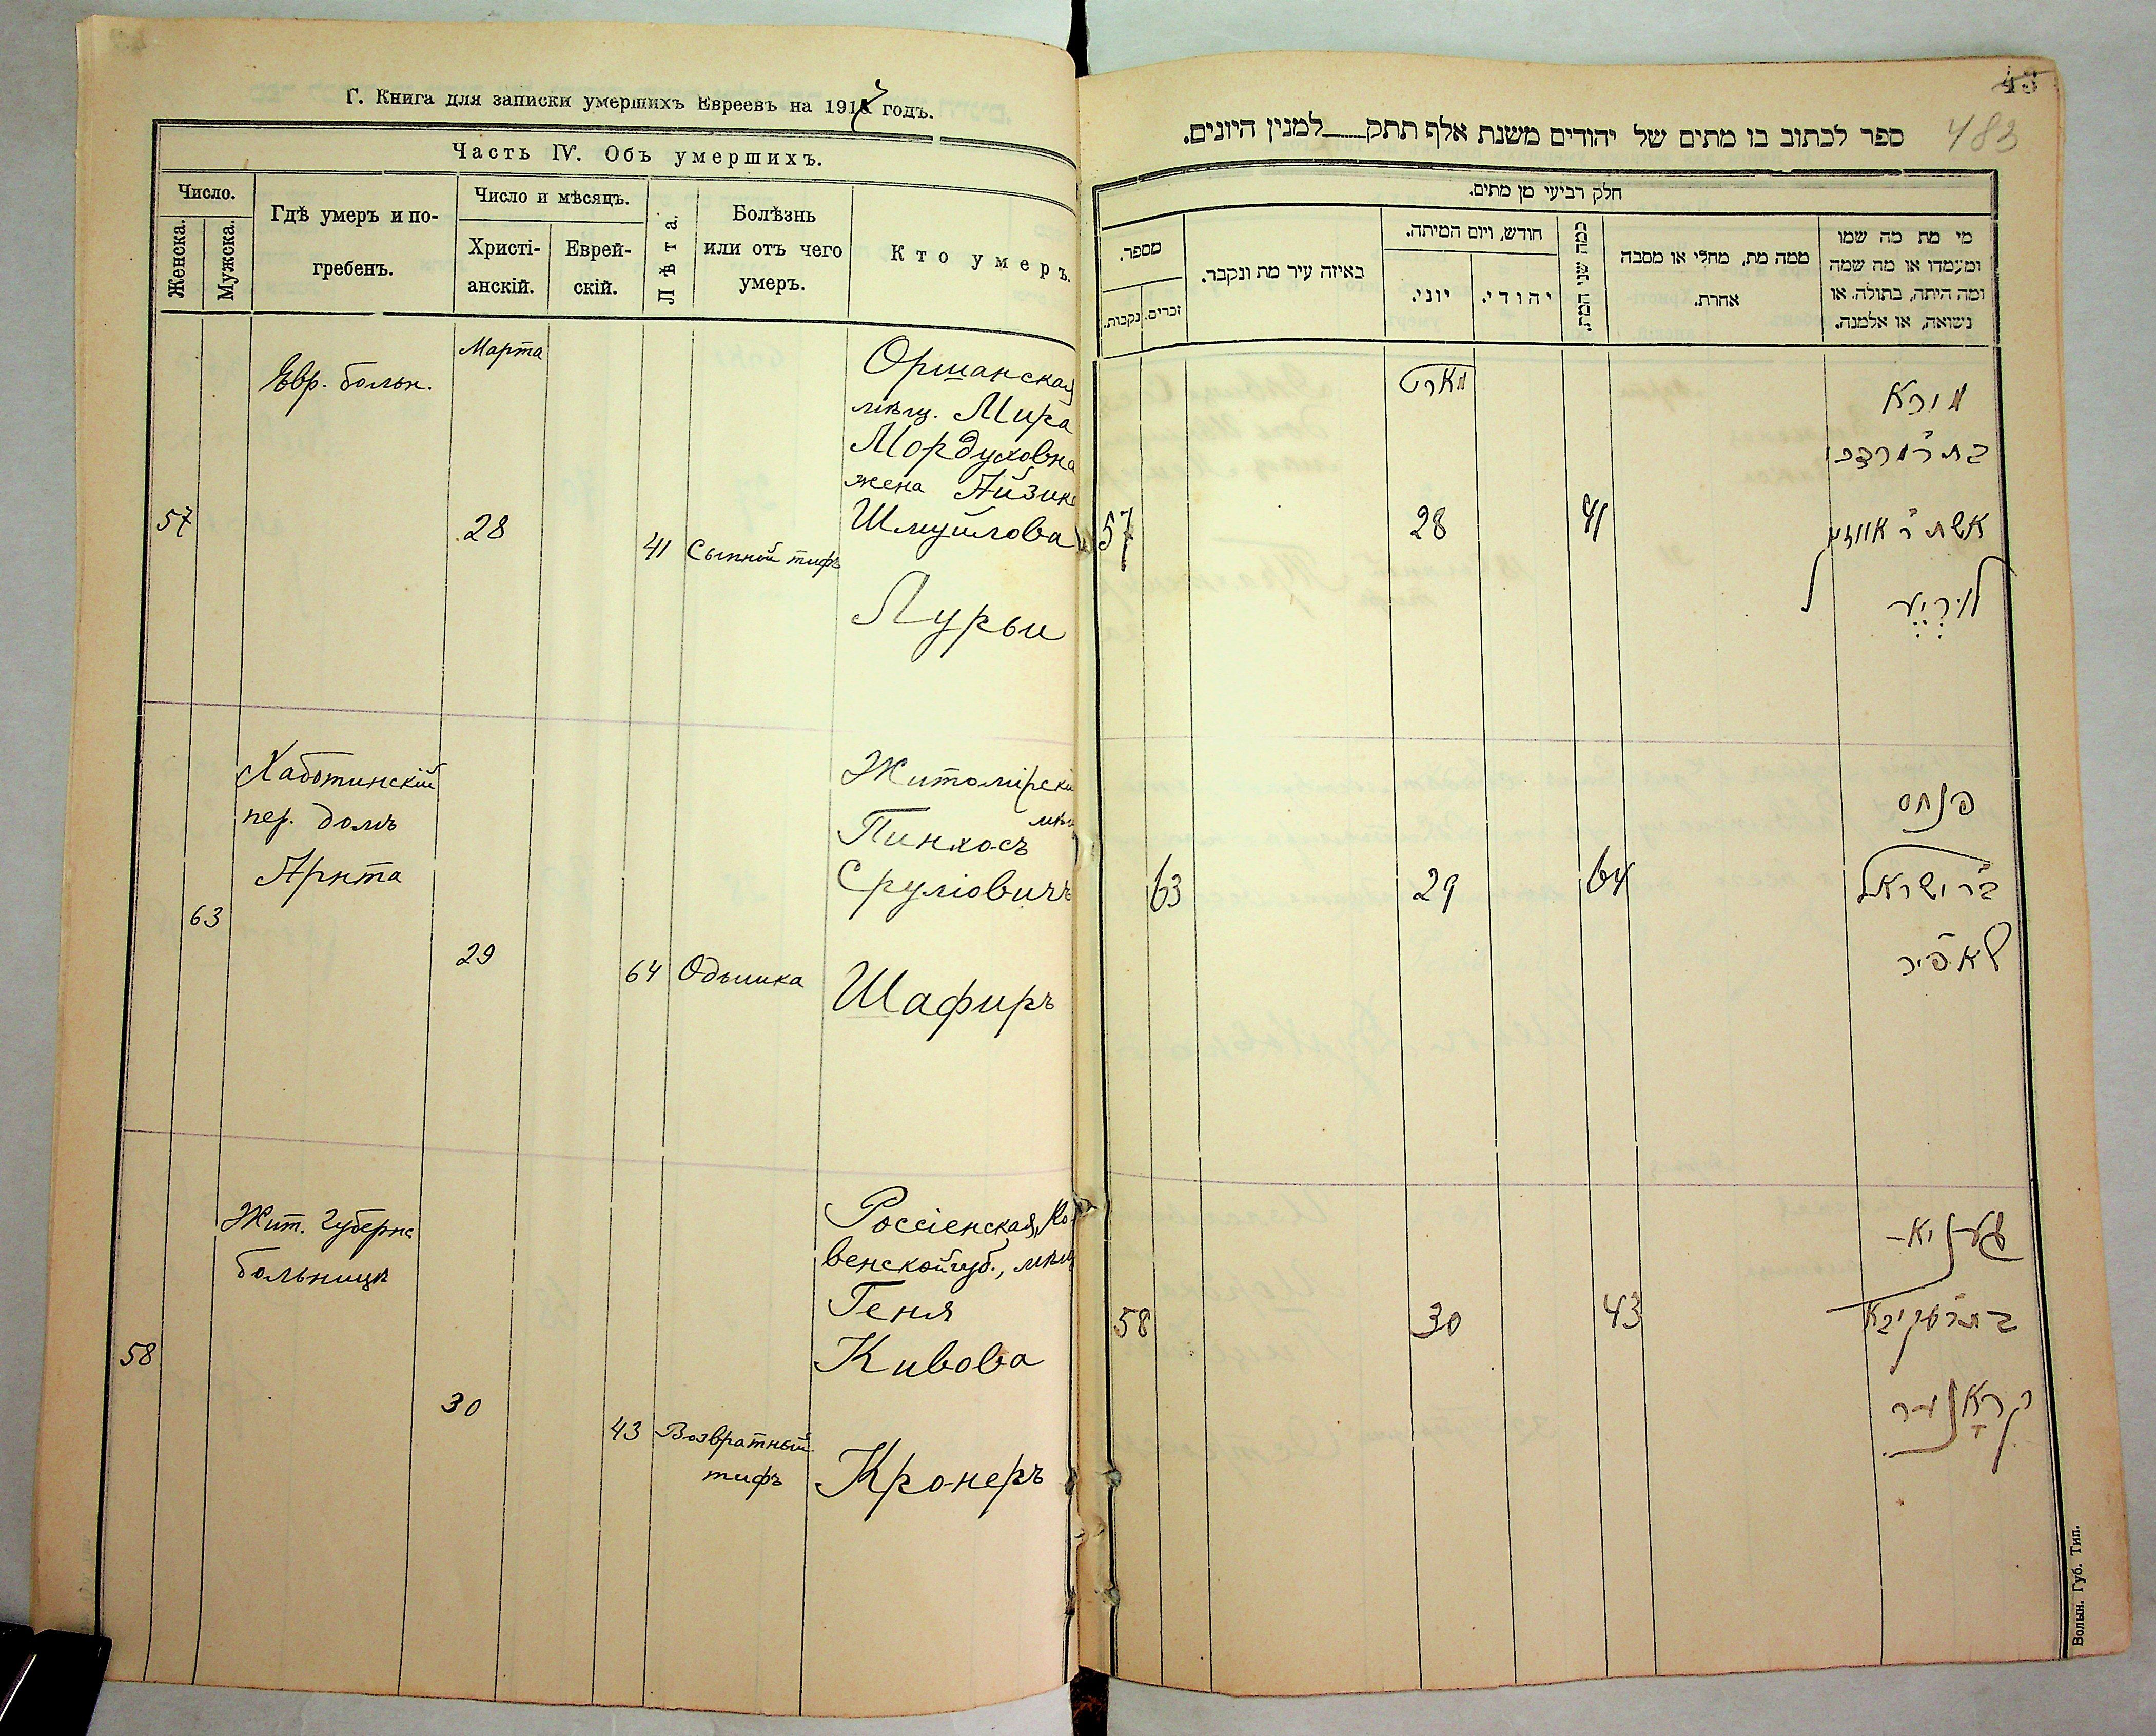 Г. Книга для записки умершихъ Евреевъ на 191 годъ.
Часть IV. Объ умершихъ.
Число.
Женска.
Мужска.
Гдѣ умеръ и по-
гребенъ.
Число и мѣсяцъ.
Христі-
анскій.
Еврей-
скій.
Лѣта.
Болѣзнь
или отъ чего
умеръ.
Кто умеръ.
Евр. больн.
Марта
57
28
41
Сыпной тифъ
Оршанская
мѣщ. Мира
Мордуховна
жена Айзик
Шмуйлова
Лурьи
Хаботинскій
пер. домъ
Арнта
63
29
64
Одышка
Житомірскій
мѣщ
Пинхосъ
Сруліовичъ
Шафиръ
Жит. Губернс
больницѣ
58
30
43
Возвратный
тифъ
Россіенская, Ко-
венской губ., мѣщ
Геня
Кивова
Кронеръ
43
483
ספר לכתוב בו מתים של יהודים משנת אלף תתק למנין היונים.
חלק רביעי מן מתים.
מספר.
נקבות.
זכרים.
באיזה עיר מת ונקבר.
חודש, ויום המיתה.
יוני.
יהודי.
כמה שני המת.
ממה מת, מחלי או מסבה
אחרת.
מי מת מה שמו
ומעמדו או מה שמה
ומה היתה, בתולה, או
נשואה, או אלמנה.
מארט
57
28
41
מירא
בת ר' מרדכי
אשת ר' אייזיק
לוריא
63
29
64
פנחס
בר' ישראל
שאפיר
58
30
43
געניא
בת ר' עקיבא
קראנער
Волын. Губ. Тип.